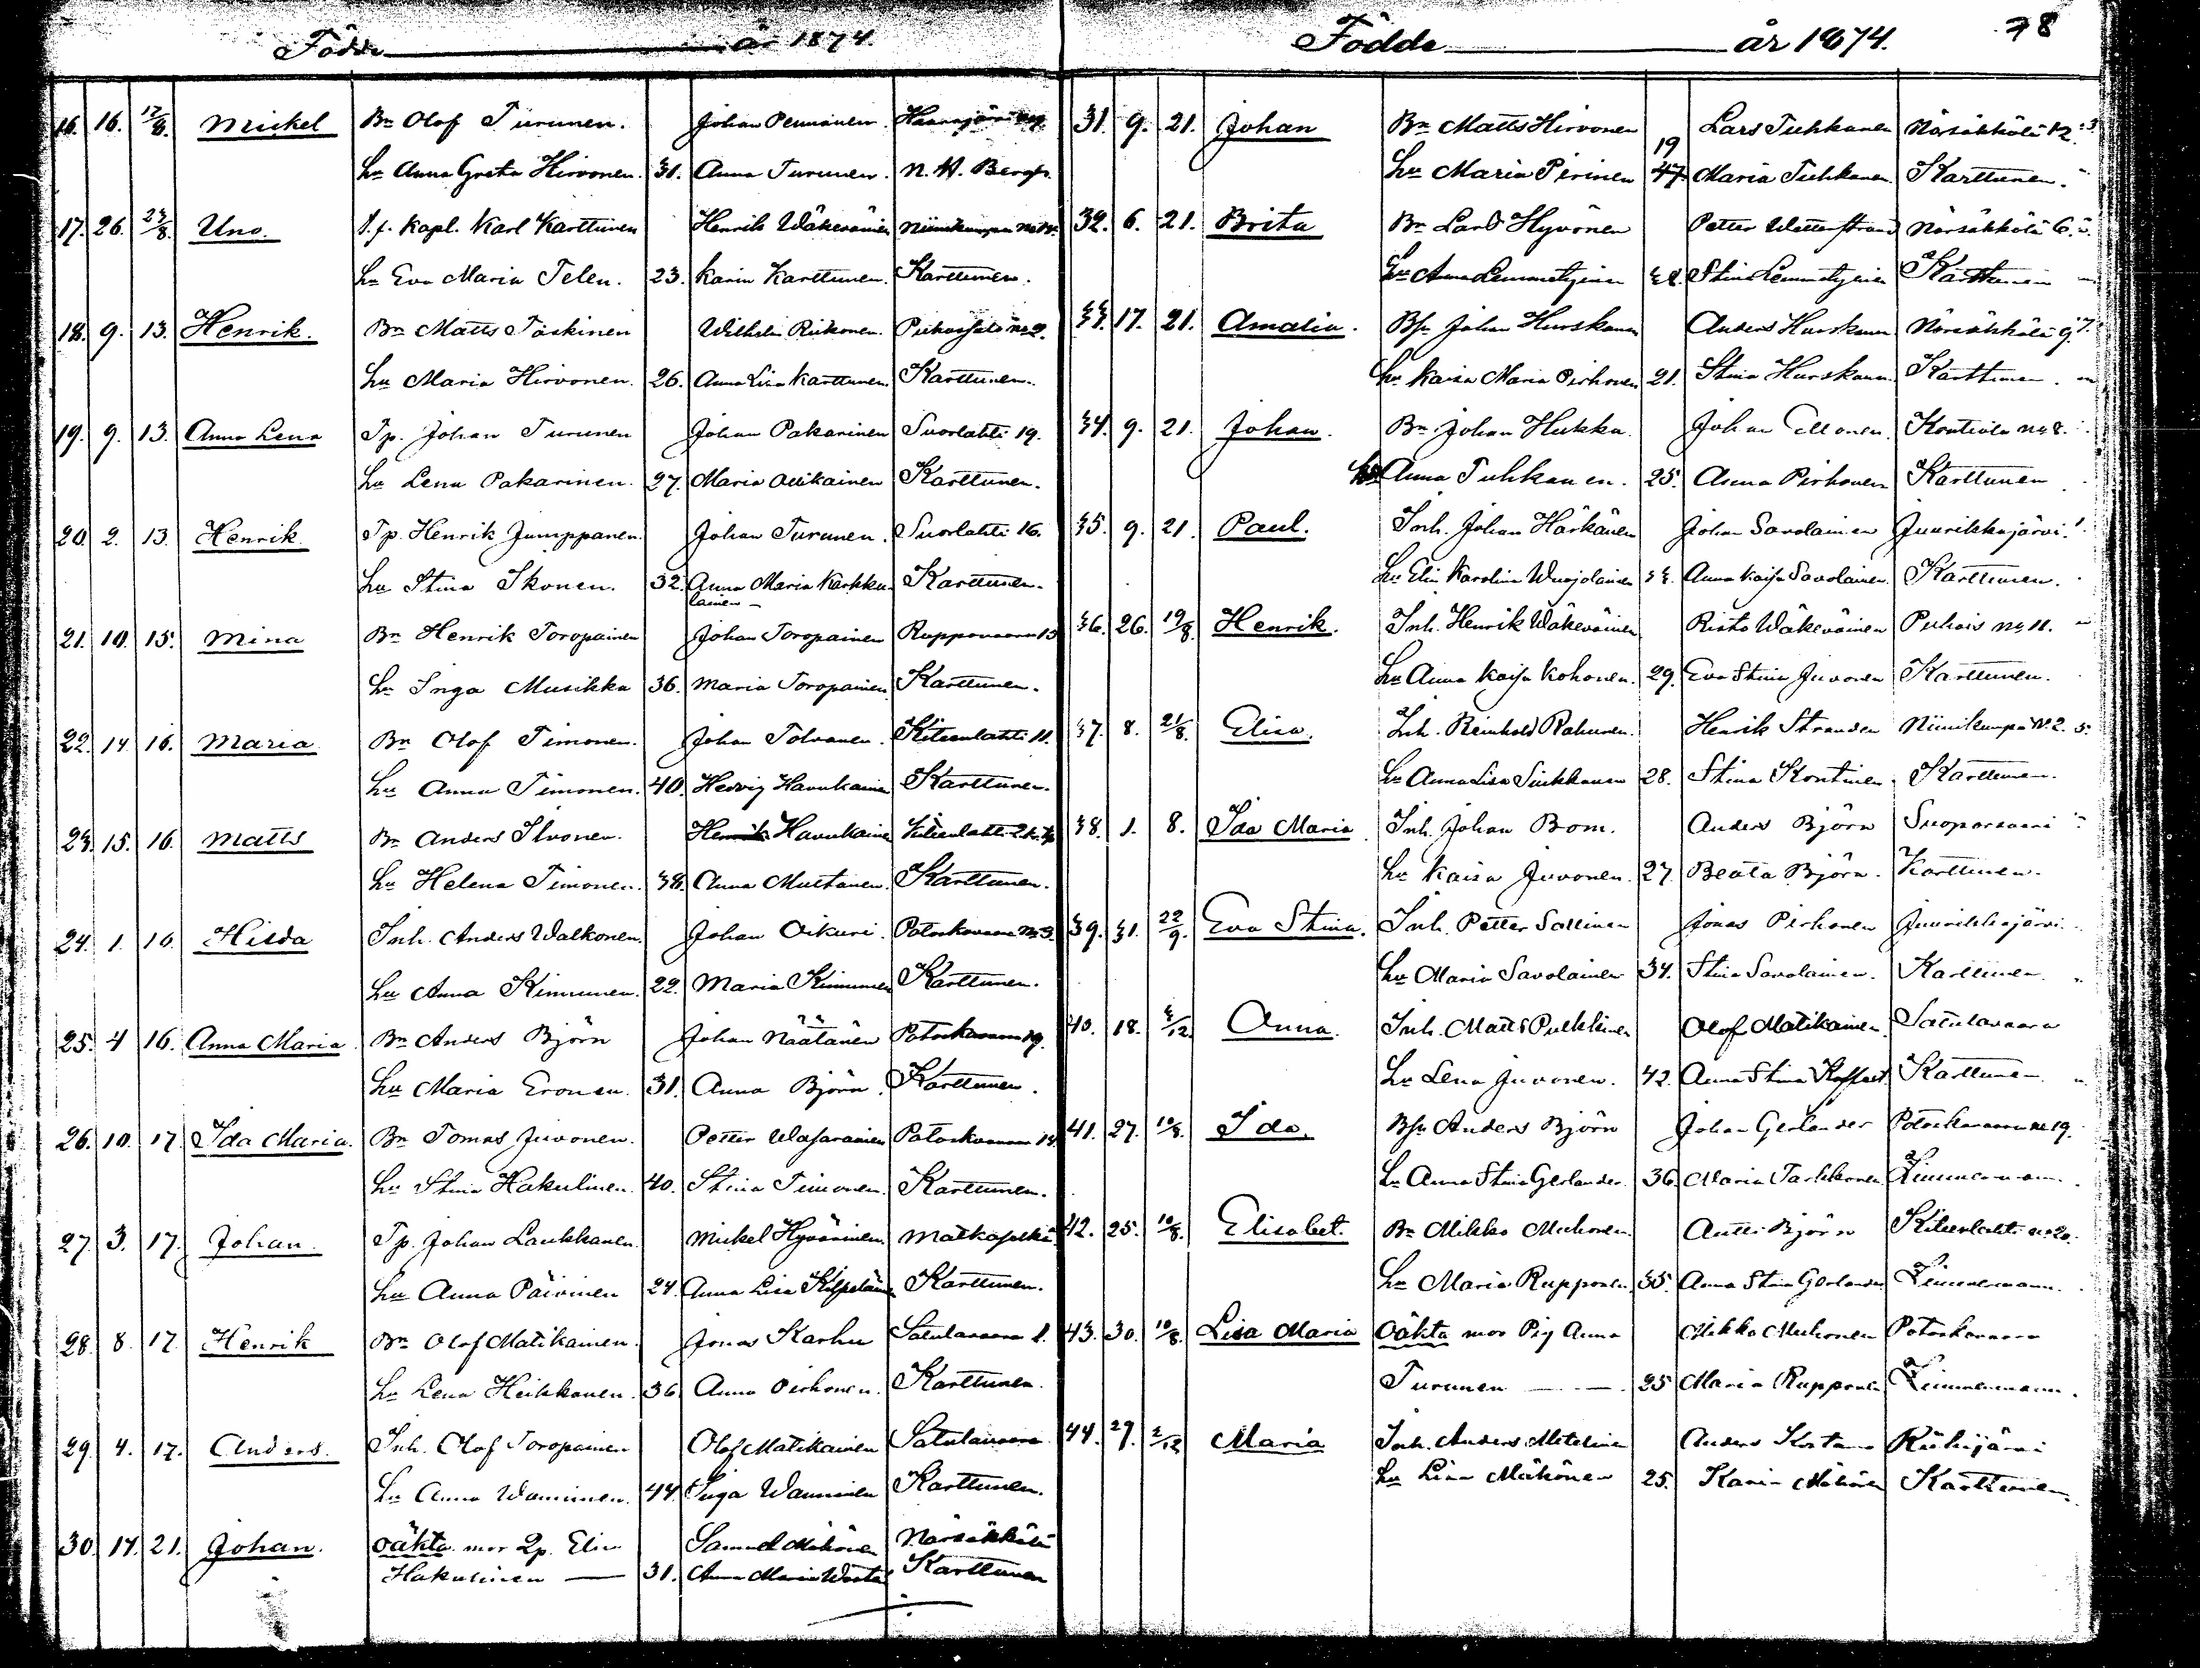 Födde år 1874.
16. 16. 12/8. Mickel Bn Olof Turunen. Johan Pennanen
Hu Anna Greta Hirvonen. 31. Anna Turunen. N. H. Bergh.
17. 26. 23/8. Uno. V. f. Kapl. Karl Karttunen Henrik Wäkeväinen Niinikumpu
Hu Eva Maria Telen. 23. Karin Karttunen. Karttunen.
18. 9. 13. Henrik. Bn Matts Toskinen Wilhelm Riikonen. No 2.
Hu Maria Hirvonen. 26. Anna Lisa Karttunen. Karttunen.
19. 9. 13. Anna Lena Tp. Johan Turunen Johan Pakarinen Suorlahti 19.
Hu Lena Pakarinen. 27. Maria Karttunen.
20. 2. 13. Henrik. Tp. Henrik Jumppanen. Johan Turunen. Suorlahti 16.
Hu Stina Ikonen. 32. Anna Maria Karkku- Karttunen.
lainen
21. 10. 15. Mina Bn Henrik Toropainen Johan Toropainen Ruppovaara 13
Hu Inga Musikka 36. Maria Toropainen Karttunen.
22. 14 16. Maria Bn Olof Timonen. Johan Tolvanen. Kiteenlahti 11.
Hu Anna Timonen. 40. Hedvig Havukainen Karttunen.
23. 15. 16. Matts Bn Anders Ilvonen. Henrik Havukainen Kiteenlahti
Hu Helena Timonen. 38. Anna Mustonen. Karttunen.
24. 1. 16. Hilda Inh. Anders Walkonen. Johan Oikuri. Potoskavaara No 3.
Hu Anna Kinnunen. 22. Maria Kinnunen Karttunen.
25. 4 16. Anna Maria Bn Anders Björn Johan Näätänen Potoskavaara 19.
Hu Maria Eronen. 31. Anna Björn. Karttunen.
26. 10. 17. Ida Maria. Bn Tomas Juvonen. Petter Potoskavaara
Hu Stina Hakulinen. 40. Stina Timonen. Karttunen.
27. 3. 17. Johan. Tp. Johan Laukkanen. Mickel Hyvärinen. Matkaselkä
Hu Anna Päivinen 24. Anna Lisa Kilpeläinen Karttunen.
28. 8. 17. Henrik Bn Olof Matikainen. Jonas Karhu Satulavaara 1.
Hu Lena Heikkanen. 36 Anna Pirhonen. Karttunen.
29. 4. 17. Anders. Inh. Olof Toropainen Olof Matikainen Satulavaara
Hu Anna Wanninen. 44. Inga Wanninen Karttunen.
30. 14. 21. Johan. Oäkta mor Elin Samuel Närsäkkälä
Hakulinen 31. Anna Maria Karttunen
Födde år 1874. 78
31. 9. 21. Johan Bn Matts Hirvonen Lars Tuhkanen Närsäkkälä 12.
19
Hu Maria Pirinen 47. Maria Tuhkanen Karttunen.
32. 6. 21. Brita Bn Lars Hyvönen Petter Wetterstrand Närsäkkälä 6.
Hu Anna Lemmetyinen Stina Lemmetyinen Karttunen
33. 17. 21. Amalia. Bsn Johan Hurskanen Anders Hurskanen Närsäkkälä 9.
Hu Kaisa Maria Pirhonen 21. Stina Hurskanen Karttunen.
34. 9. 21. Johan. Bn Johan Hukka. Johan Kontiola No 8.
Hu Anna Tuhkanen. 25. Anna Pirhonen Karttunen
35. 9. 21. Paul. Inh. Johan Härkänen Johan Savolainen Juurikkajärvi.
Hu Elin Karolina Wuojolainen 33. Anna Kajsa Savolainen. Karttunen.
36. 26. 19/8. Henrik. Inh. Henrik Wäkeväinen Risto Wäkeväinen Puhois No 11.
Hu Anna Kajsa Kohonen. 29. Eva Stina Juvonen Karttunen.
37. 8. 21/8. Elisa. Inh. Reinhold Rahunen. Henrik Stranden Niinikumpu No 2.
Hu Anna Lisa Sinkkonen 28. Stina Kontinen. Karttunen.
38. 1. 8. Ida Maria Inh. Johan Bom. Anders Björn Suoparsaari
Hu Kaisa Juvonen. 27. Beata Björn. Karttunen.
39. 31. 22/9. Eva Stina. Inh. Petter Sallinen Jonas Pirhonen Juurikkajärvi.
Hu Maria Savolainen 34. Stina Savolainen. Karttunen.
40. 18. Anna. Inh. Matts Pulkkinen Olof Matikainen. Satulavaara
Hu Lena Juvonen. 42. Anna Stina Karttunen
41. 27. 10/8. Ida. Bsn Anders Björn Johan Gerlander Potoskavaara No 19.
Hu Anna Stina Gerlander. 36 Maria Tarkkonen Zimmermann.
42. 25. 10/8. Elisabet. Bn Mikko Muhonen. Antti Björn Kiteenlahti No 20.
Hu Maria Rupponen 35. Anna Stina Gerlander Zimmermann.
43. 30. 10/8. Lisa Maria Oäkta mor Pig Anna Mikko Muhonen Potoskavaara
Turunen 25 Maria Rupponen Zimmermann.
44. 27. 2/12 Maria Inh. Anders Anders Riihijärvi
Hu Liisa Mäkönen 25. Karin Karttunen.